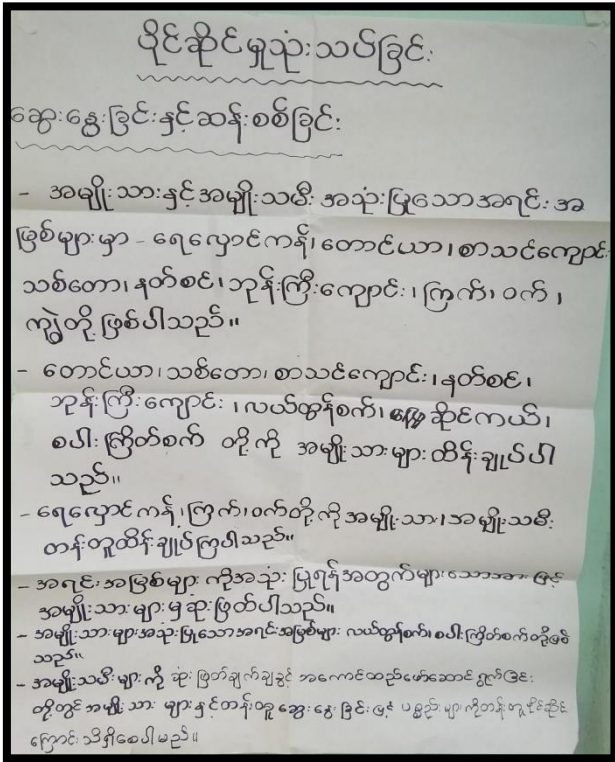 ပိုင်ဆိုင်မှုသုံးသပ်ခြင်း
ဆွေးနွေးခြင်းနှင့်ဆန်းစစ်ခြင်း
- အမျိုးသားနှင့်အမျိုးသမီး အသုံးပြုသောအရင်းအ
မြစ်များမှာ - ရေလှောင်ကန်၊ တောင်ယာ၊ စာသင်ကျောင်း
သစ်တော၊ နတ်စင်၊ ဘုန်းကြီးကျောင်း၊ ကြက်၊ ဝက်၊
ကျွဲတို့ဖြစ်ပါသည်။
- တောင်ယာ၊ သစ်တော၊ စာသင်ကျောင်း၊ နတ်စင်၊
ဘုန်းကြီးကျောင်း၊ လယ်ထွန်စက်၊ ဆိုင်ကယ်၊
စပါးကြိတ်စက် တို့ကို အမျိုးသားများထိန်းချုပ်ပါ
သည်။
- ရေလှောင်ကန်၊ ကြက်၊ ဝက်တို့ကိုအမျိုးသား၊ အမျိုးသမီး
တန်းတူထိန်းချုပ်ကြပါသည်။
- အရင်းအမြစ်များကိုအသုံးပြုရန်အတွက်များသောအားဖြင့်
အမျိုးသားများမှဆုံးဖြတ်ပါသည်။
- အမျိုးသားများအသုံးပြုသောအရင်းအမြစ်များ လယ်ထွန်စက်၊ စပါးကြိတ်စက်တို့ဖြစ်
သည်။
- အမျိုးသမီးများကို ဆုံးဖြတ်ချက်ချခွင့် အကောင်ထည်ဖော်ဆောင်ရွက်ခြင်း
တို့တွင်အမျိုးသား များနှင့်တန်းတူဆွေးနွေးခြင်းဖြင့် ပစ္စည်းများကိုတန်းတူပိုင်ဆိုင်
ကြောင်းသိရှိစေပါမည်။